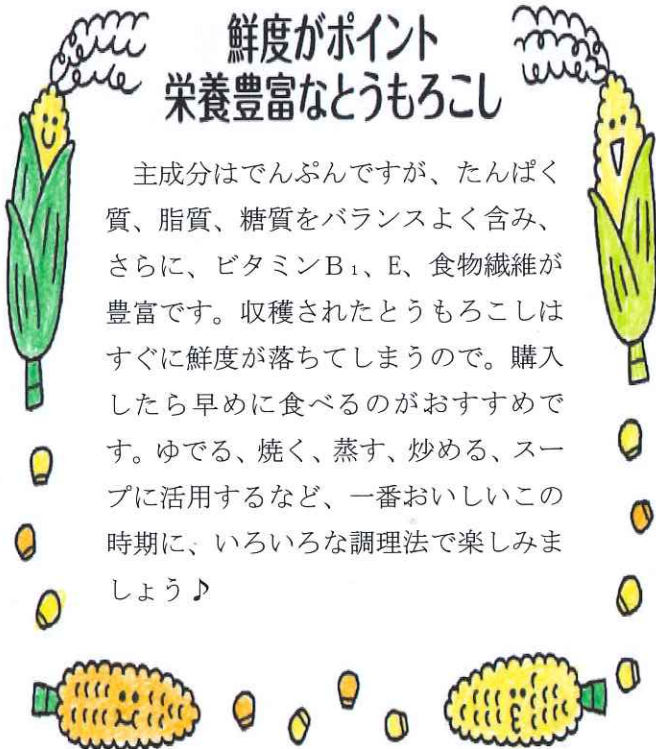 鮮度がポイント
栄養豊富なとうもろこし
主成分はでんぷんですが、たんぱく
質、脂質、糖質をバランスよく含み、
さらに、ビタミンB₁、E、食物繊維が
豊富です。収穫されたとうもろこしは
すぐに鮮度が落ちてしまうので。購入
したら早めに食べるのがおすすめで
す。ゆでる、焼く、蒸す、炒める、スー
プに活用するなど、一番おいしいこの
時期に、いろいろな調理法で楽しみま
しょう♪